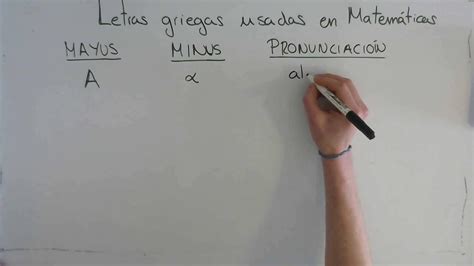 Letras griegas usadas en Matemáticas
MAYUS MINUS PRONUNCIACIÓN
A α al